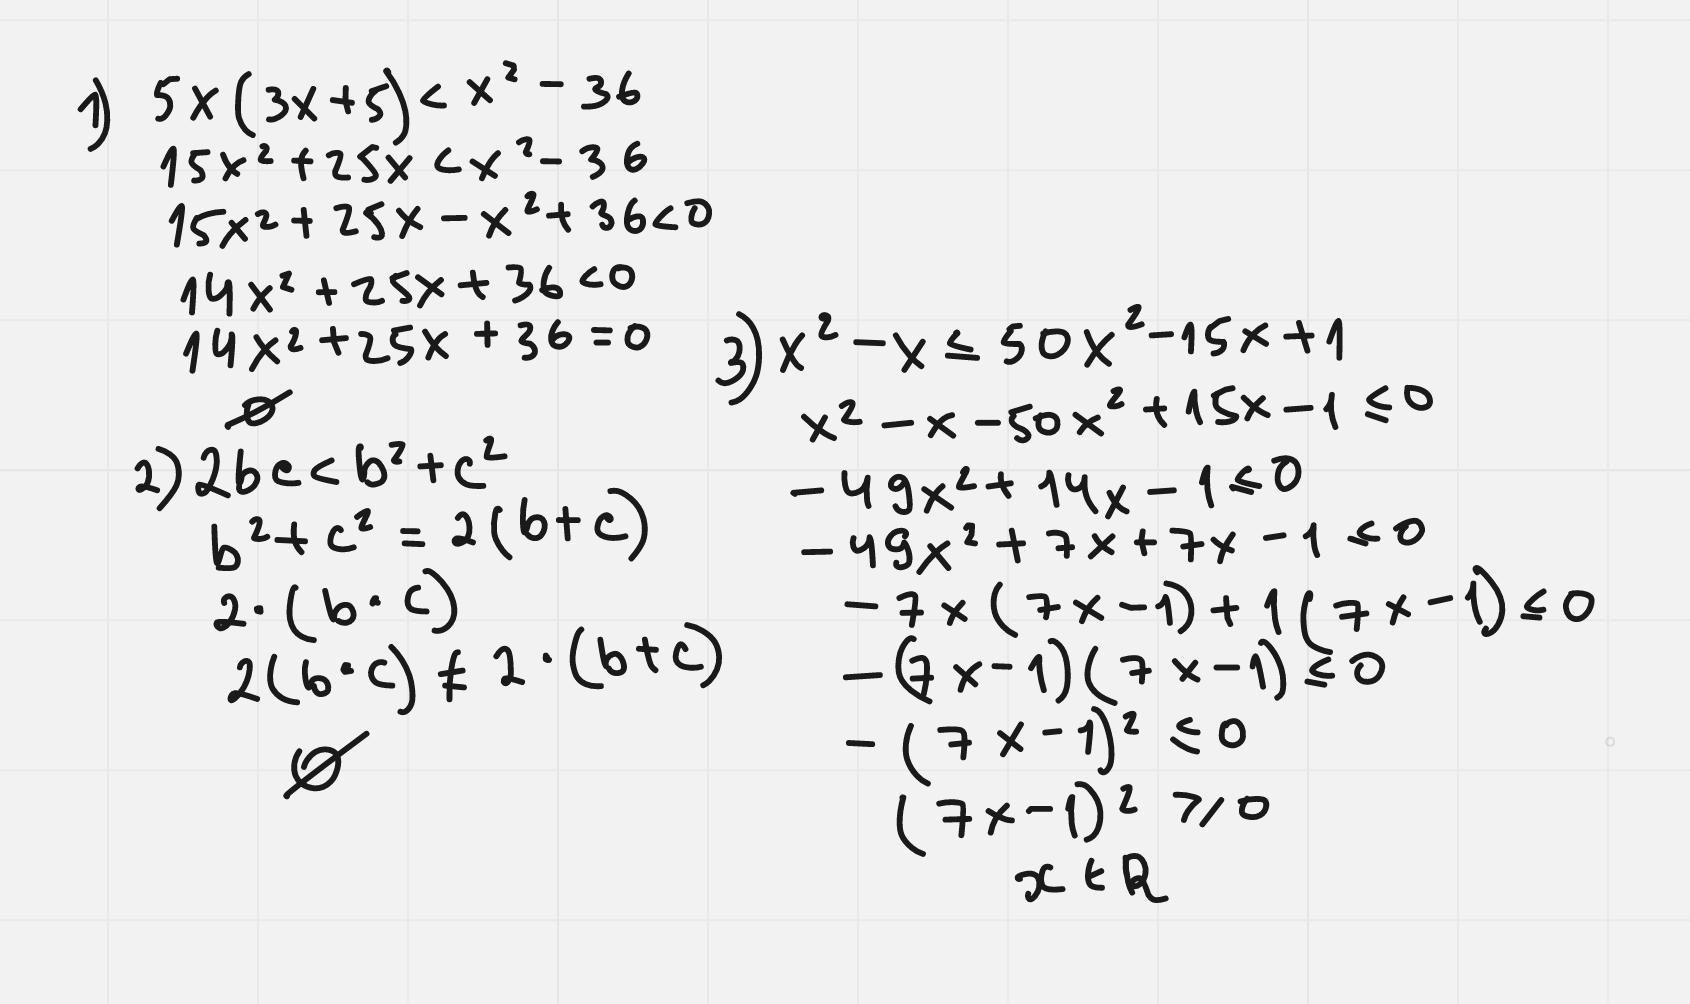 1) 5x(3x+5) < x² - 36
15x² + 25x < x² - 36
15x² + 25x - x² + 36 < 0
14x² + 25x + 36 < 0
14x² + 25x + 36 = 0
∅
2) 2bc < b² + c²
b² + c² = 2(b+c)
2·(b·c)
2(b·c) ≠ 2·(b+c)
∅
3) x² - x ≤ 50x² - 15x + 1
x² - x - 50x² + 15x - 1 ≤ 0
- 49x² + 14x - 1 ≤ 0
- 49x² + 7x + 7x - 1 ≤ 0
- 7x(7x - 1) + 1(7x - 1) ≤ 0
- (7x - 1)(7x - 1) ≤ 0
- (7x - 1)² ≤ 0
(7x - 1)² ⩾ 0
x ∈ R